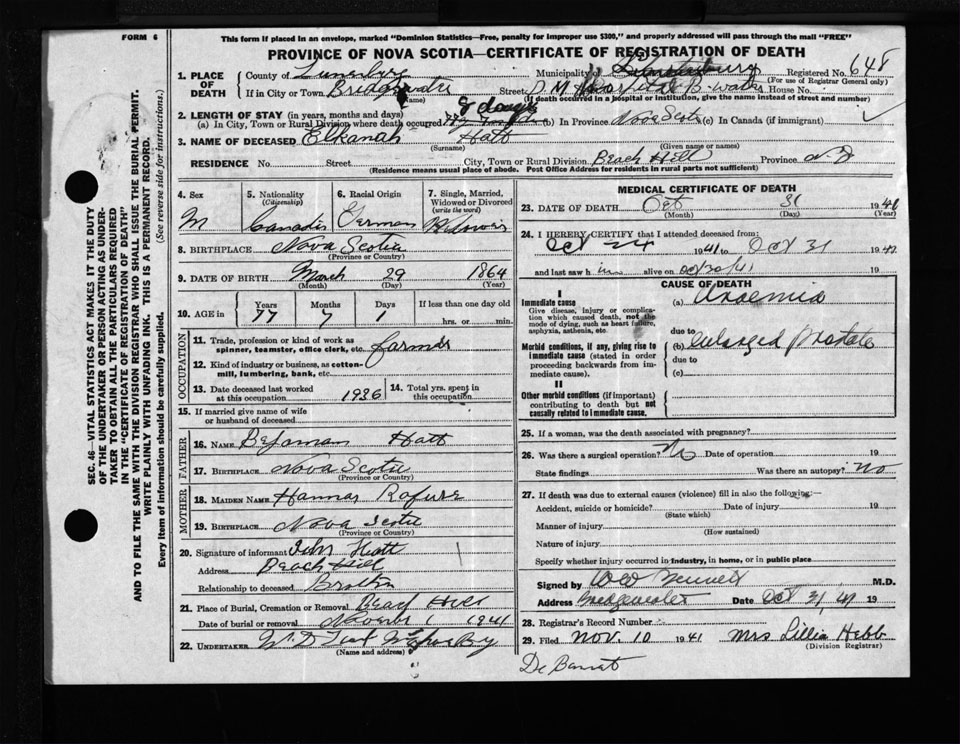 FORM 6
This form if placed in an envelope, marked "Dominion Statistics—Free, penalty for improper use $300," and properly addressed will pass through the mail "FREE"
PROVINCE OF NOVA SCOTIA—CERTIFICATE OF REGISTRATION OF DEATH
1. PLACE OF DEATH County of Municipality of Registered No. 648
(For use of Registrar General only)
If in City or Town Street House No.
(Name) (If death occurred in a hospital or institution, give the name instead of street and number)
2. LENGTH OF STAY (in years, months and days)
(a) In City, Town or Rural Division where death occurred (b) In Province Nova Scotia (c) In Canada (if immigrant)
3. NAME OF DECEASED Elkanah Hatt
(Surname) (Given name or names)
RESIDENCE No. Street City, Town or Rural Division Beach Hill Province N.S.
(Residence means usual place of abode. Post Office Address for residents in rural parts not sufficient)
4. Sex M
5. Nationality (Citizenship)
6. Racial Origin German
7. Single, Married, Widowed or Divorced (write the word)
8. BIRTHPLACE Nova Scotia
(Province or Country)
9. DATE OF BIRTH March 29 1864
(Month) (Day) (Year)
10. AGE Years 77 Months 7 Days 1 If less than one day old hrs. or min.
OCCUPATION
11. Trade, profession or kind of work as spinner, teamster, office clerk, etc. farmer
12. Kind of industry or business, as cotton-mill, lumbering, bank, etc.
13. Date deceased last worked at this occupation 1936 14. Total yrs. spent in this occupation
15. If married give name of wife or husband of deceased
FATHER
16. NAME Hatt
17. BIRTHPLACE Nova Scotia
(Province or Country)
MOTHER
18. MAIDEN NAME Hannar Rafuse
19. BIRTHPLACE Nova Scotia
(Province or Country)
20. Signature of informant John Hatt
Address Beach Hill
Relationship to deceased Brother
21. Place of Burial, Cremation or Removal Beach Hill
Date of burial or removal 1 1941
22. UNDERTAKER
(Name and address)
MEDICAL CERTIFICATE OF DEATH
23. DATE OF DEATH Oct 31 1941
(Month) (Day) (Year)
24. I HEREBY CERTIFY that I attended deceased from:
Oct 24 1941 to Oct 31 19
and last saw h im alive on 19
CAUSE OF DEATH
I
Immediate cause (a)
Give disease, injury, or complication which caused death, not the mode of dying, such as heart failure, asphyxia, asthenia, etc.
due to
Morbid conditions, if any, giving rise to immediate cause (stated in order proceeding backwards from immediate cause). (b) enlarged prostate
due to
(c)
II
Other morbid conditions (if important) contributing to death but not causally related to immediate cause.
25. If a woman, was the death associated with pregnancy?
26. Was there a surgical operation? No Date of operation 19
State findings Was there an autopsy? No
27. If death was due to external causes (violence) fill in also the following:—
Accident, suicide or homicide? Date of injury 19
(State which)
Manner of injury
(How sustained)
Nature of injury
Specify whether injury occurred in industry, in home, or in public place
Signed by M.D.
Address Bridgewater Date Oct 31, 41 19
28. Registrar's Record Number
29. Filed Nov. 10 1941 Mrs Lillia Hebb
(Division Registrar)
SEC. 46—VITAL STATISTICS ACT MAKES IT THE DUTY
OF THE UNDERTAKER OR PERSON ACTING AS UNDER-
TAKER TO OBTAIN ALL THE PARTICULARS REQUIRED
IN THE "CERTIFICATE OF REGISTRATION OF DEATH"
AND TO FILE THE SAME WITH THE DIVISION REGISTRAR WHO SHALL ISSUE THE BURIAL PERMIT.
WRITE PLAINLY WITH UNFADING INK. THIS IS A PERMANENT RECORD.
Every item of information should be carefully supplied. (See reverse side for instructions.)